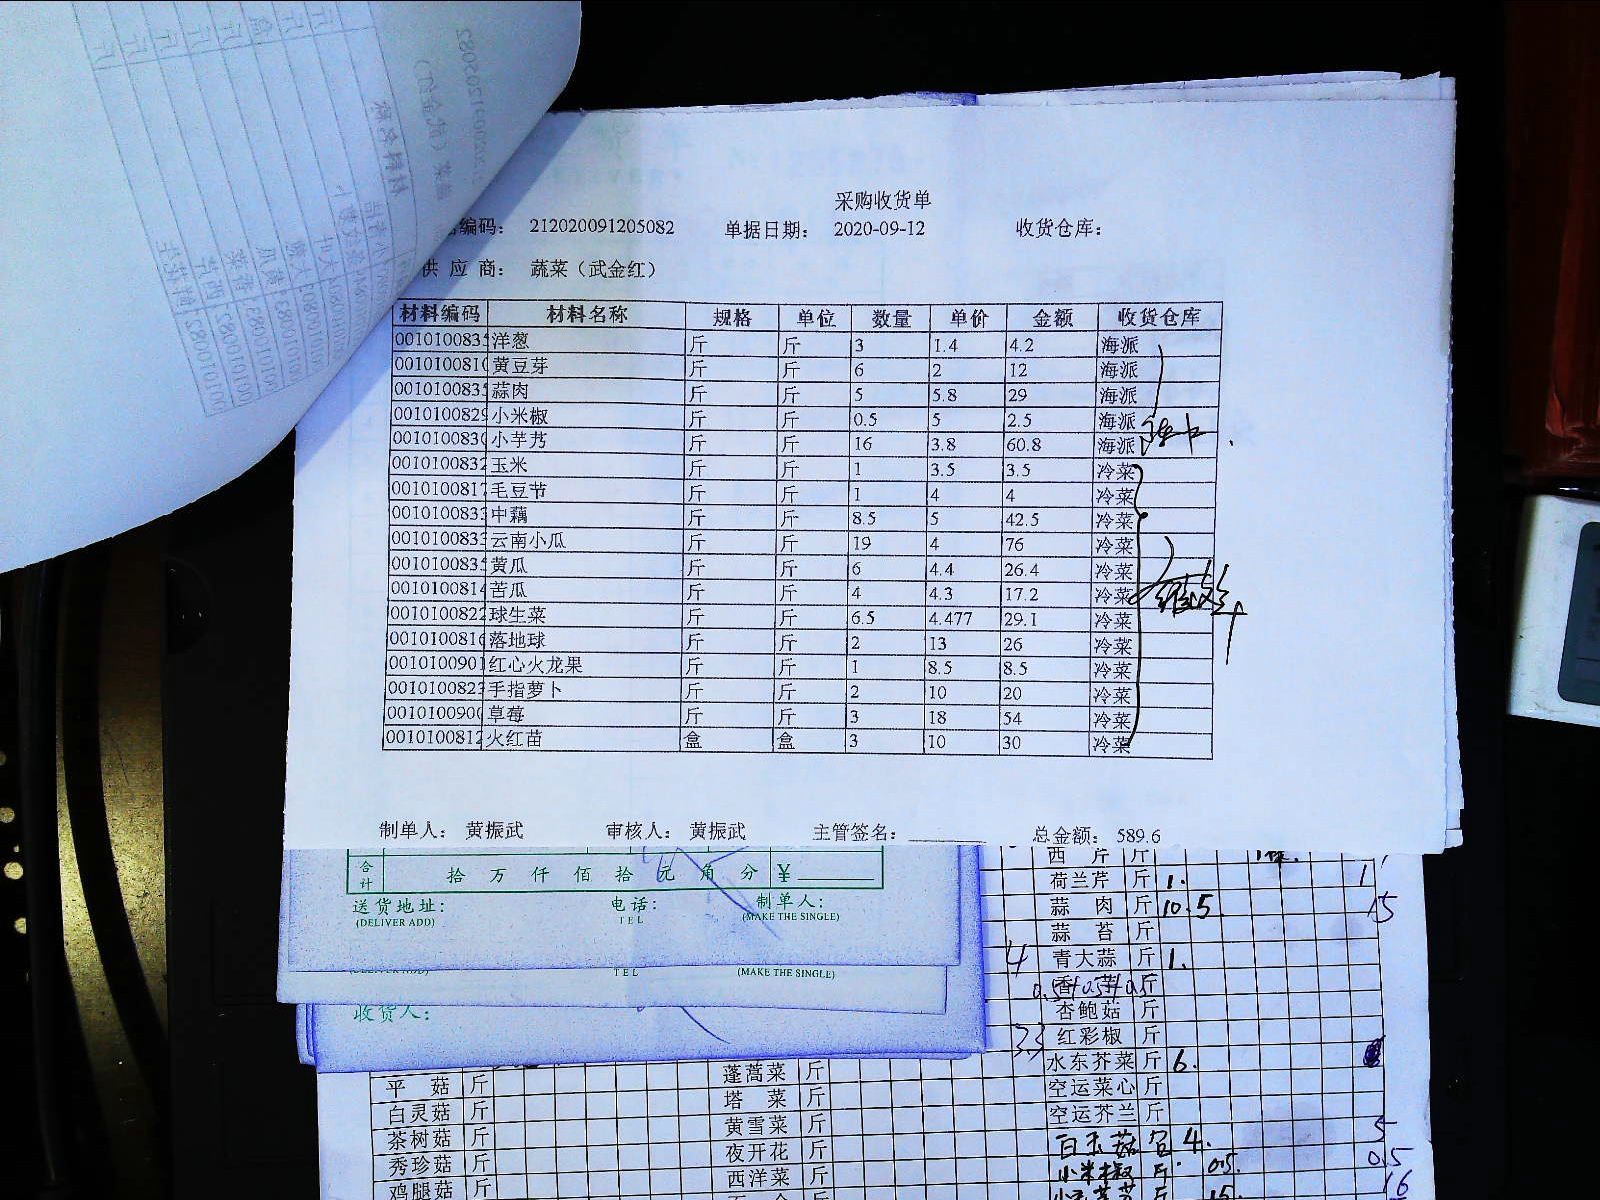 采购收货单
编码： 212020091205082 单据日期： 2020-09-12 收货仓库：
供 应 商： 蔬菜（武金红）
材料编码 材料名称 规格 单位 数量 单价 金额 收货仓库
0010100835 洋葱 斤 斤 3 1.4 4.2 海派
001010081 黄豆芽 斤 斤 6 2 12 海派
001010083 蒜肉 斤 斤 5 5.8 29 海派
0010100829 小米椒 斤 斤 0.5 5 2.5 海派
001010083 小芋艿 斤 斤 16 3.8 60.8 海派
0010100832 玉米 斤 斤 1 3.5 3.5 冷菜
0010100817 毛豆节 斤 斤 1 4 4 冷菜
0010100833 中藕 斤 斤 8.5 5 42.5 冷菜
0010100833 云南小瓜 斤 斤 19 4 76 冷菜
0010100835 黄瓜 斤 斤 6 4.4 26.4 冷菜
0010100814 苦瓜 斤 斤 4 4.3 17.2 冷菜
0010100822 球生菜 斤 斤 6.5 4.477 29.1 冷菜
0010100816 落地球 斤 斤 2 13 26 冷菜
0010100901 红心火龙果 斤 斤 1 8.5 8.5 冷菜
0010100823 手指萝卜 斤 斤 2 10 20 冷菜
0010100900 草莓 斤 斤 3 18 54 冷菜
0010100812 火红苗 盒 盒 3 10 30 冷菜
制单人： 黄振武 审核人： 黄振武 主管签名： 总金额： 589.6
合计 拾 万 仟 佰 拾 元 角 分 ¥
送货地址： 电话： 制单人：
(DELIVER ADD) TEL (MAKE THE SINGLE)
TEL (MAKE THE SINGLE)
收货人：
西 芹 斤
荷兰芹 斤 1. 1
蒜 肉 斤 10.5 15
蒜 苔 斤
4 青大蒜 斤 1.
斤
杏鲍菇 斤
33 红彩椒 斤
水东芥菜 斤 6.
空运菜心 斤
空运芥兰 斤
白玉菇 包 4. 5
小米椒 斤 0.5. 0.5
斤 15. 16
平 菇 斤 蓬蒿菜 斤
白灵菇 斤 塔 菜 斤
茶树菇 斤 黄雪菜 斤
秀珍菇 斤 夜开花 斤
鸡腿菇 斤 西洋菜 斤